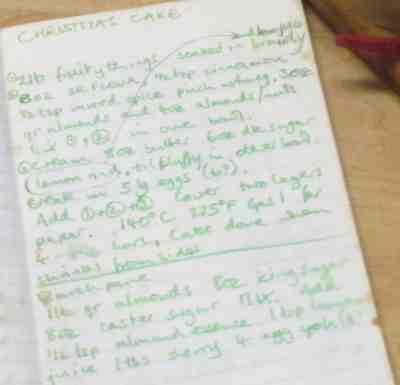 CHRISTMAS CAKE
2lb fruity things soaked in brandy
8oz SR flour, ½ tsp cinnamon
½ tsp mixed spice pinch nutmeg, 3oz
gr almonds and 4oz almonds/nuts
in one bowl.
Cream 8oz butter 6oz dk sugar
(lemon rind, til fluffy in other bowl.
Break in 5 eggs
Add cover two layers
paper. 140°C 225°F Gas 1 for
4 hours, Cake done when
shrinks from sides
1lb gr almonds 8oz icing sugar
8oz caster sugar Mix. Add
½ tsp almond essence 1 tbsp lemon
juice 1 tbs sherry 4 egg yolk(s)